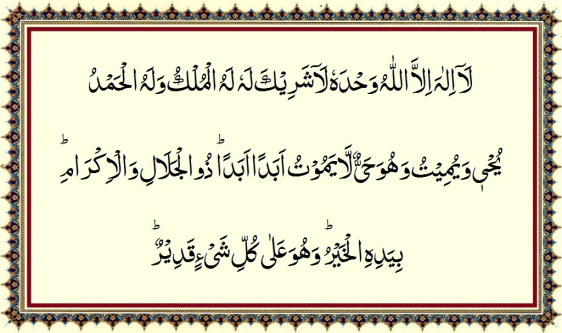 لَآ اِلٰہَ اِلَّا اللّٰہُ وَحْدَہٗ لَآ شَرِیْکَ لَہٗ لَہُ الْمُلْکُ وَلَہُ الْحَمْدُ
یُحْیٖ وَیُمِیْتُ وَھُوَحَیٌّ لَّا یَمُوْتُ اَبَدًا اَبَدًا ؕ ذُوالْجَلَالِ وَالْاِکْرَامِ ؕ
بِیَدِہِ الْخَیْرُ ؕ وَھُوَ عَلٰی کُلِّ شَیْءٍ قَدِیْرٌ ؕ